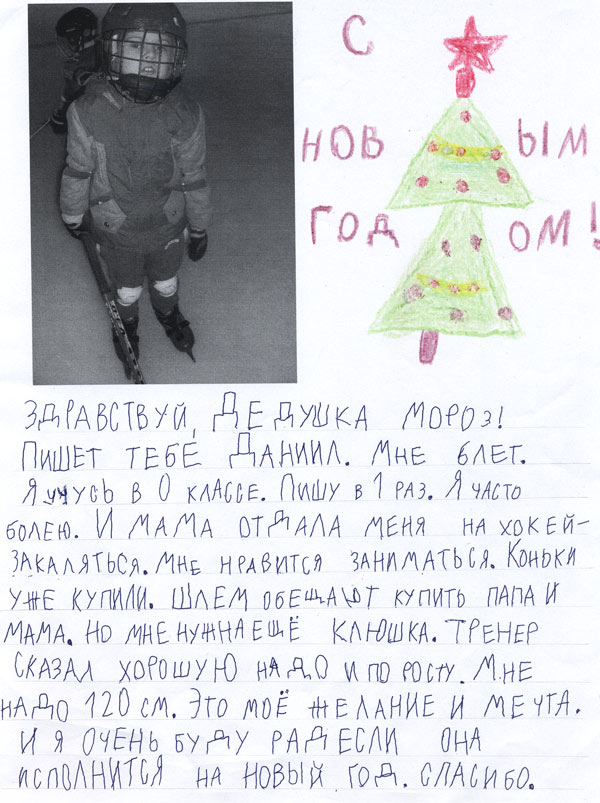 С
НОВ ЫМ
ГОД ОМ!
ЗДРАВСТВУЙ, ДЕДУШКА МОРОЗ!
ПИШЕТ ТЕБЕ ДАНИИЛ. МНЕ 6 ЛЕТ.
Я УЧУСЬ В 0 КЛАССЕ. ПИШУ В 1 РАЗ. Я ЧАСТО
БОЛЕЮ. И МАМА ОТДАЛА МЕНЯ НА ХОКЕЙ-
ЗАКАЛЯТЬСЯ. МНЕ НРАВИТСЯ ЗАНИМАТЬСЯ. КОНЬКИ
УЖЕ КУПИЛИ. ШЛЕМ ОБЕЩАЮТ КУПИТЬ ПАПА И
МАМА. НО МНЕ НУЖНА ЕЩЁ КЛЮШКА. ТРЕНЕР
СКАЗАЛ ХОРОШУЮ НАДО И ПО РОСТУ. МНЕ
НАДО 120 СМ. ЭТО МОЁ ЖЕЛАНИЕ И МЕЧТА.
И Я ОЧЕНЬ БУДУ РАД ЕСЛИ ОНА
ИСПОЛНИТСЯ НА НОВЫЙ ГОД. СПАСИБО.